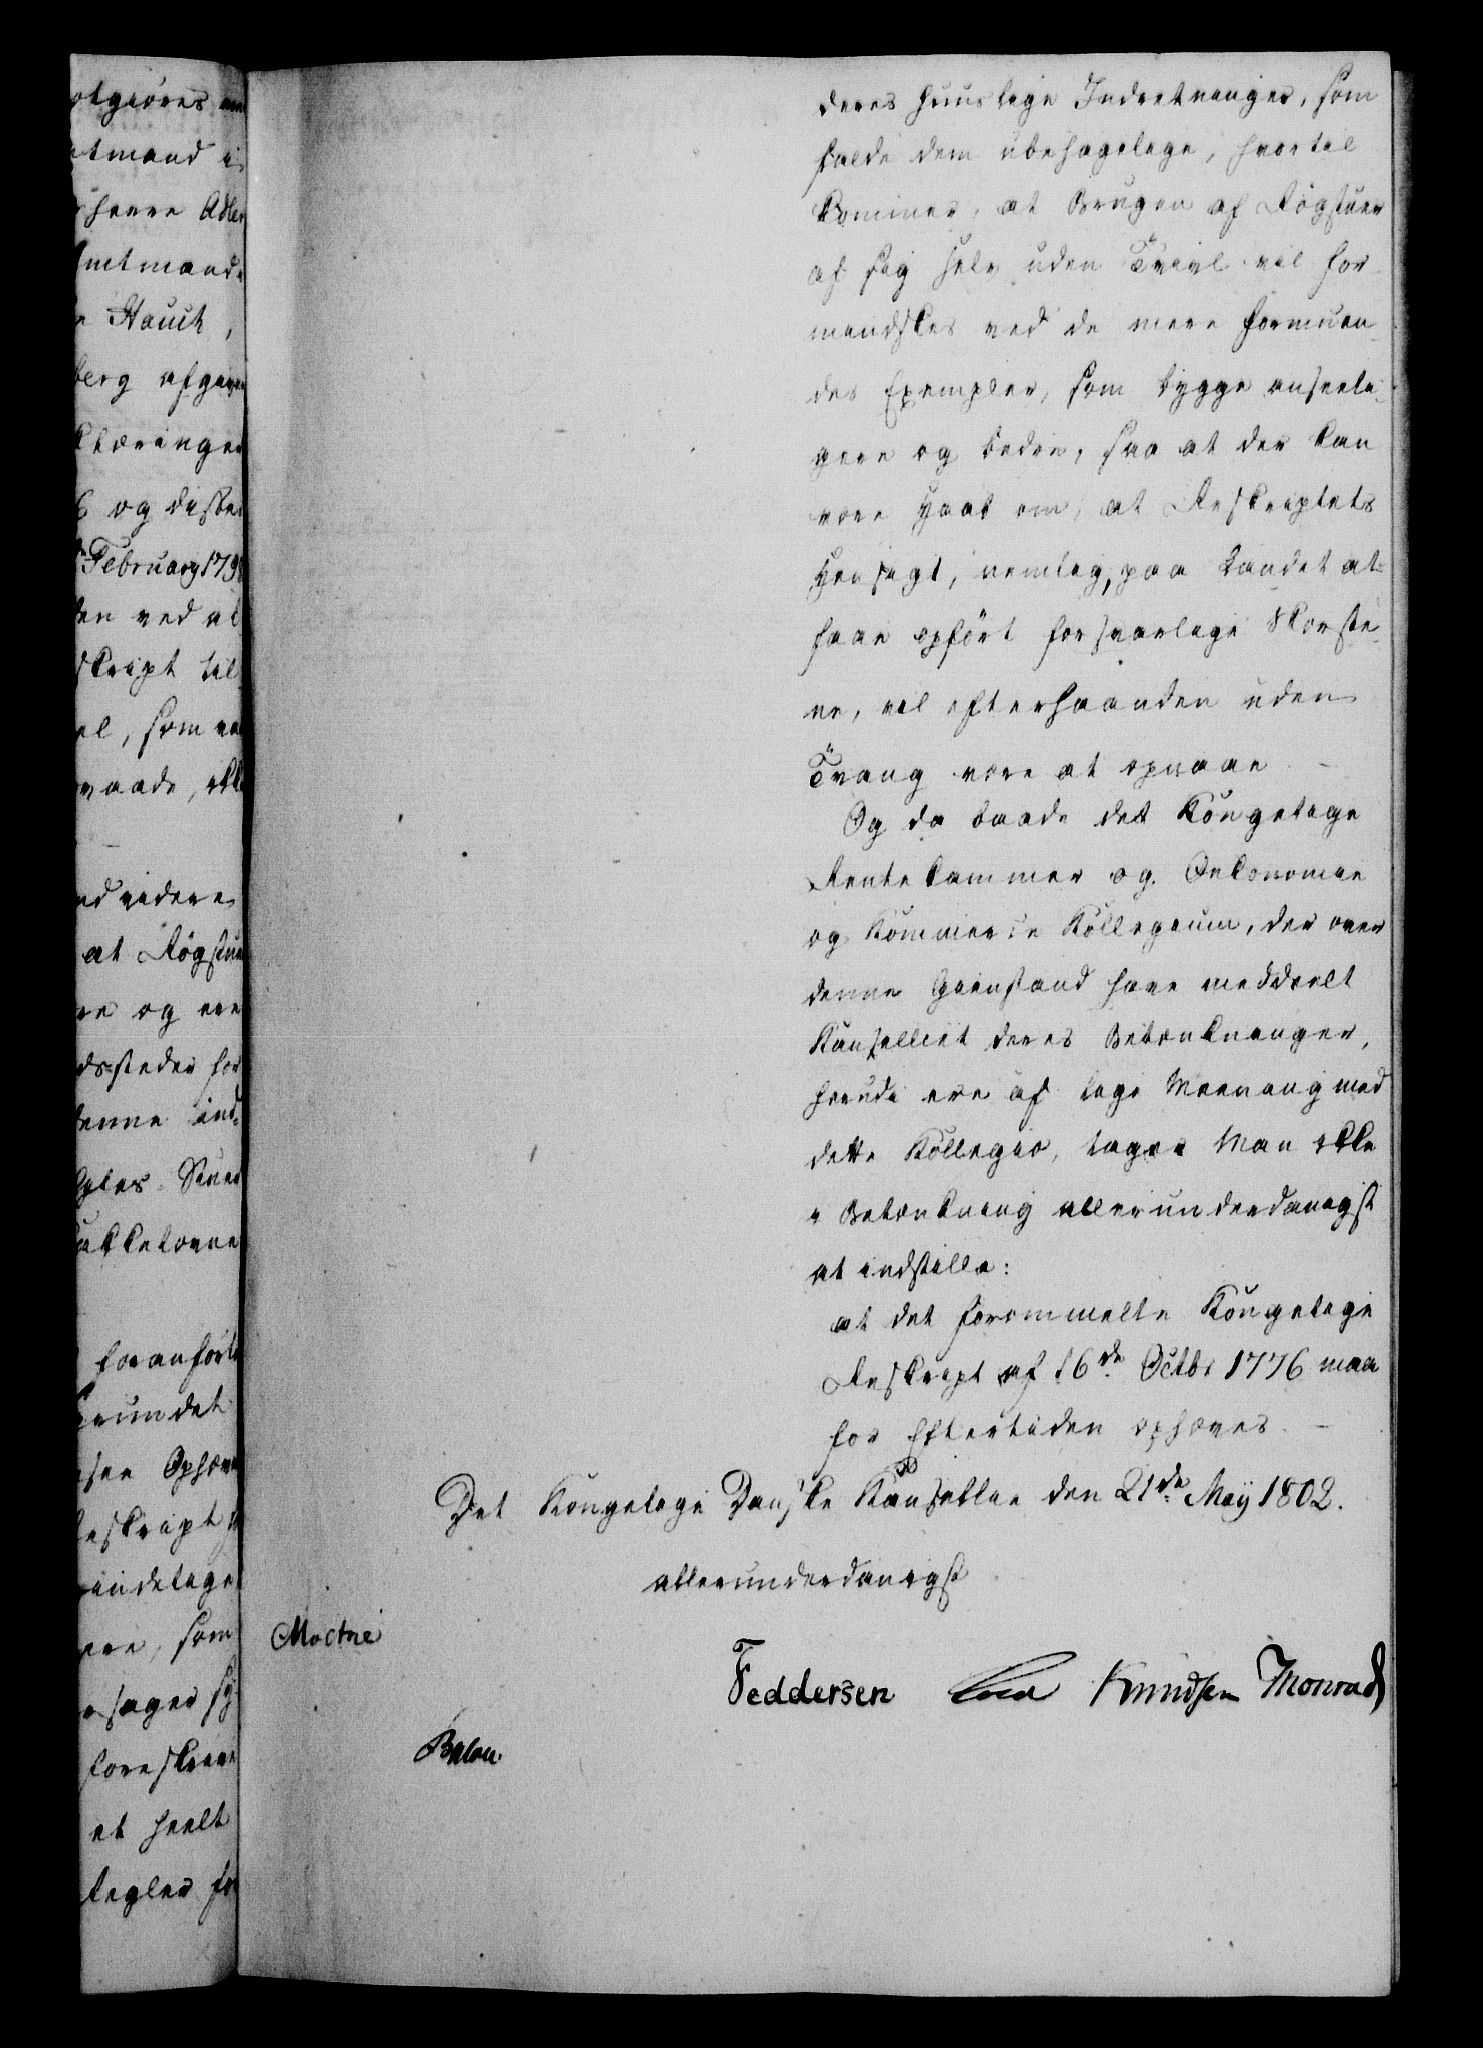 otgiöres
tmand i
herre Adler
mtmænd
Hauch,
berg afgiven
klæringer
og disse
February 1798
den ved al
skript til
el, som
vaade, ikke
nd videre
at Røgstue
re og ere
dssteder for
denne ind-
Stuer
akkelovne
foranførte
grundet
Ophæv
eskript
indelige
ere, som
sager
foreskrev
et heelt
Regler for
deres huuslige Indretninger, som
falde dem ubehagelige, hvortil
kommer, at Brugen af Røgstuer
af sig selv uden Tvivl vil for-
mindskes ved de mere formuen-
des Exempler, som bygge anseeli-
gere og bedre, saa at der kan
være Haab om, at Reskriptets
Hensigt, nemlig, paa Landet at
faae opført forsvarlige Skorstee-
ne, vil efterhaanden uden
Tvang være at opnaae.
Og da baade det Kongelige
Rentekammer og Oekonomie
og Kommerce Kollegium, der over
denne Gienstand have meddeelt
Kanselliet deres Betænkninger,
herudi ere af lige Meening med
dette Kollegio, tager Man ikke
i Betænkning allerunderdanigst
at indstille:
at det forommeldte Kongelige
Reskript af 16de Octbr 1776 maa
for Eftertiden ophæves.
Det Kongelige Danske Kansellie den 21de Maÿ 1802.
allerunderdanigst
Feddersen Knudsen Monrad